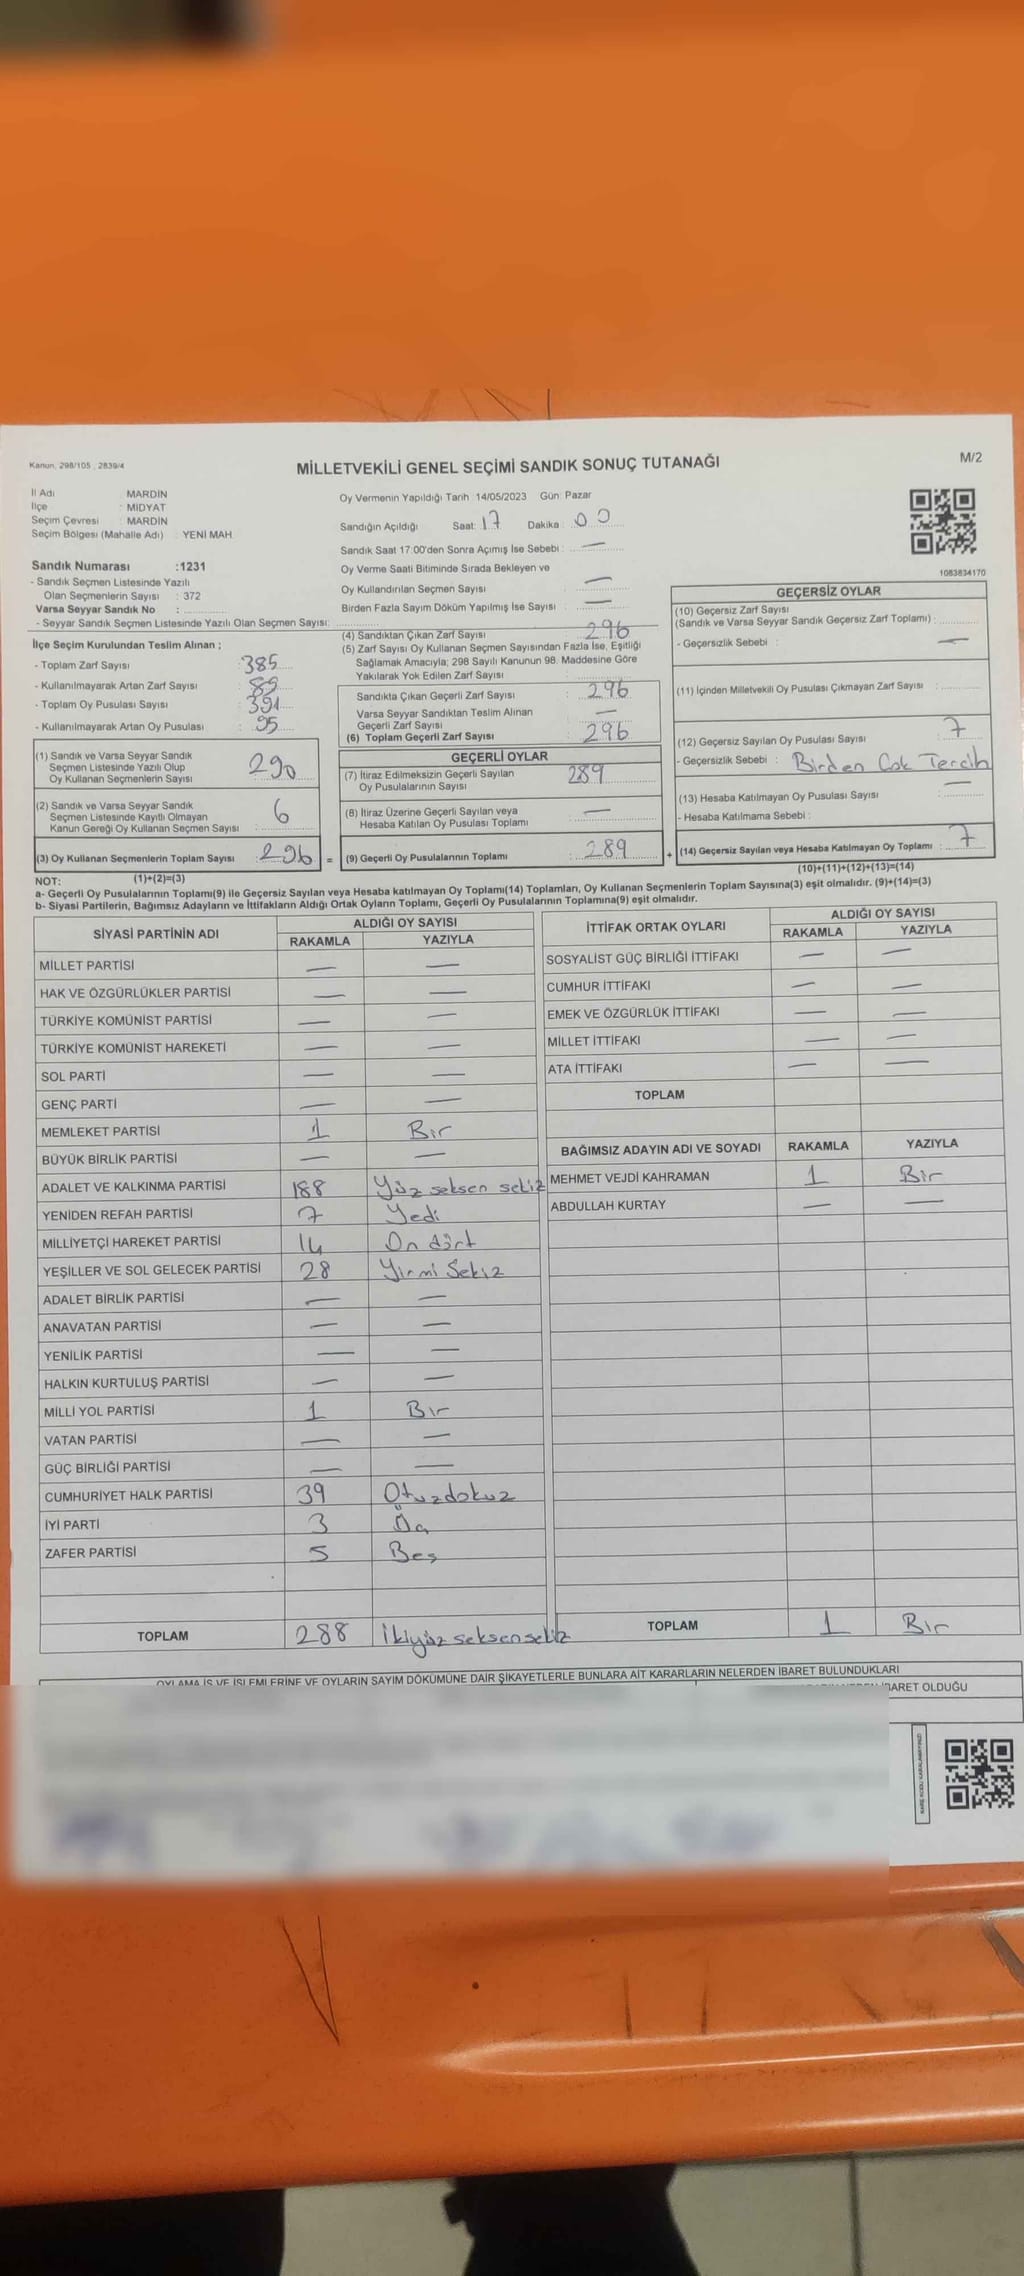 Kanun, 298/105 , 2839/4
MİLLETVEKİLİ GENEL SEÇİMİ SANDIK SONUÇ TUTANAĞI
M/2
İl Adı : MARDİN
İlçe : MİDYAT
Seçim Çevresi : MARDİN
Seçim Bölgesi (Mahalle Adı) : YENİ MAH.
Sandık Numarası :1231
- Sandık Seçmen Listesinde Yazılı
Olan Seçmenlerin Sayısı : 372
Varsa Seyyar Sandık No :
- Seyyar Sandık Seçmen Listesinde Yazılı Olan Seçmen Sayısı:
Oy Vermenin Yapıldığı Tarih :14/05/2023 Gün: Pazar
Sandığın Açıldığı Saat: 17 Dakika : 00
Sandık Saat 17:00'den Sonra Açımış İse Sebebi : —
Oy Verme Saati Bitiminde Sırada Bekleyen ve
Oy Kullandırılan Seçmen Sayısı : —
Birden Fazla Sayım Döküm Yapılmış İse Sayısı : —
1083834170
İlçe Seçim Kurulundan Teslim Alınan ;
- Toplam Zarf Sayısı : 385
- Kullanılmayarak Artan Zarf Sayısı : 89
- Toplam Oy Pusulası Sayısı : 391
- Kullanılmayarak Artan Oy Pusulası : 95
(1) Sandık ve Varsa Seyyar Sandık
Seçmen Listesinde Yazılı Olup
Oy Kullanan Seçmenlerin Sayısı : 290
(2) Sandık ve Varsa Seyyar Sandık
Seçmen Listesinde Kayıtlı Olmayan
Kanun Gereği Oy Kullanan Seçmen Sayısı : 6
(3) Oy Kullanan Seçmenlerin Toplam Sayısı : 296 =
(1)+(2)=(3)
(4) Sandıktan Çıkan Zarf Sayısı : 296
(5) Zarf Sayısı Oy Kullanan Seçmen Sayısından Fazla İse, Eşitliği
Sağlamak Amacıyla; 298 Sayılı Kanunun 98. Maddesine Göre
Yakılarak Yok Edilen Zarf Sayısı :
Sandıkta Çıkan Geçerli Zarf Sayısı : 296
Varsa Seyyar Sandıktan Teslim Alınan
Geçerli Zarf Sayısı : —
(6) Toplam Geçerli Zarf Sayısı : 296
GEÇERLİ OYLAR
(7) İtiraz Edilmeksizin Geçerli Sayılan
Oy Pusulalarının Sayısı : 289
(8) İtiraz Üzerine Geçerli Sayılan veya
Hesaba Katılan Oy Pusulası Toplamı : —
(9) Geçerli Oy Pusulalarının Toplamı : 289 +
GEÇERSİZ OYLAR
(10) Geçersiz Zarf Sayısı
(Sandık ve Varsa Seyyar Sandık Geçersiz Zarf Toplamı) :
- Geçersizlik Sebebi : —
(11) İçinden Milletvekili Oy Pusulası Çıkmayan Zarf Sayısı :
(12) Geçersiz Sayılan Oy Pusulası Sayısı : 7
- Geçersizlik Sebebi : Birden Çok Tercih
(13) Hesaba Katılmayan Oy Pusulası Sayısı : —
- Hesaba Katılmama Sebebi :
(14) Geçersiz Sayılan veya Hesaba Katılmayan Oy Toplamı : 7
(10)+(11)+(12)+(13)=(14)
NOT:
a- Geçerli Oy Pusulalarının Toplamı(9) ile Geçersiz Sayılan veya Hesaba katılmayan Oy Toplamı(14) Toplamları, Oy Kullanan Seçmenlerin Toplam Sayısına(3) eşit olmalıdır. (9)+(14)=(3)
b- Siyasi Partilerin, Bağımsız Adayların ve İttifakların Aldığı Ortak Oyların Toplamı, Geçerli Oy Pusulalarının Toplamına(9) eşit olmalıdır.
SİYASİ PARTİNİN ADI ALDIĞI OY SAYISI
RAKAMLA YAZIYLA
MİLLET PARTİSİ — —
HAK VE ÖZGÜRLÜKLER PARTİSİ — —
TÜRKİYE KOMÜNİST PARTİSİ — —
TÜRKİYE KOMÜNİST HAREKETİ — —
SOL PARTİ — —
GENÇ PARTİ — —
MEMLEKET PARTİSİ 1 Bir
BÜYÜK BİRLİK PARTİSİ — —
ADALET VE KALKINMA PARTİSİ 188 Yüz seksen sekiz
YENİDEN REFAH PARTİSİ 7 Yedi
MİLLİYETÇİ HAREKET PARTİSİ 14 On dört
YEŞİLLER VE SOL GELECEK PARTİSİ 28 Yirmi Sekiz
ADALET BİRLİK PARTİSİ — —
ANAVATAN PARTİSİ — —
YENİLİK PARTİSİ — —
HALKIN KURTULUŞ PARTİSİ — —
MİLLİ YOL PARTİSİ 1 Bir
VATAN PARTİSİ — —
GÜÇ BİRLİĞİ PARTİSİ — —
CUMHURİYET HALK PARTİSİ 39 Otuzdokuz
İYİ PARTİ 3 Üç
ZAFER PARTİSİ 5 Beş
TOPLAM 288 İkiyüz seksen sekiz
İTTİFAK ORTAK OYLARI ALDIĞI OY SAYISI
RAKAMLA YAZIYLA
SOSYALİST GÜÇ BİRLİĞİ İTTİFAKI — —
CUMHUR İTTİFAKI — —
EMEK VE ÖZGÜRLÜK İTTİFAKI — —
MİLLET İTTİFAKI — —
ATA İTTİFAKI — —
TOPLAM
BAĞIMSIZ ADAYIN ADI VE SOYADI RAKAMLA YAZIYLA
MEHMET VEJDİ KAHRAMAN 1 Bir
ABDULLAH KURTAY — —
TOPLAM 1 Bir
OYLAMA İŞ VE İŞLEMLERİNE VE OYLARIN SAYIM DÖKÜMÜNE DAİR ŞİKAYETLERLE BUNLARA AİT KARARLARIN NELERDEN İBARET BULUNDUKLARI
İBARET OLDUĞU